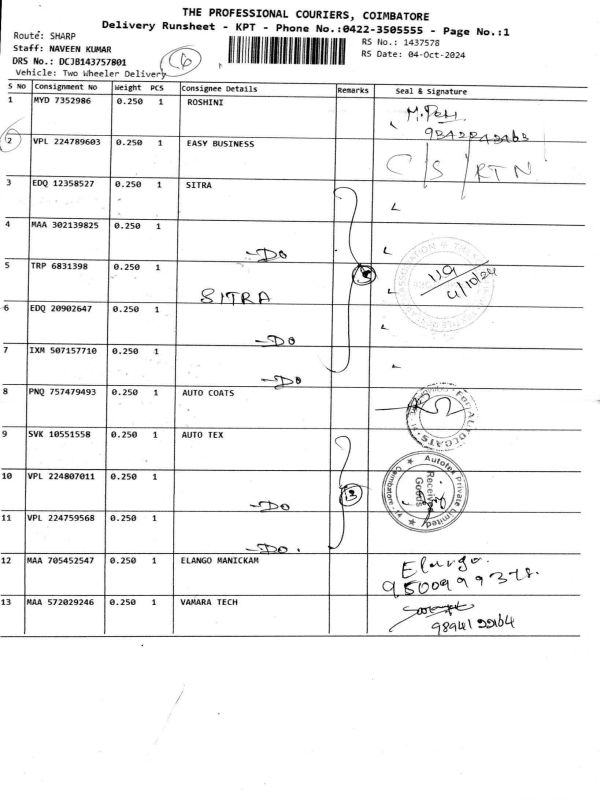 THE PROFESSIONAL COURIERS, COIMBATORE
Delivery Runsheet - KPT - Phone No.:0422-3505555 - Page No.:1
Route: SHARP
RS No.: 1437578
Staff: NAVEEN KUMAR
RS Date: 04-Oct-2024
DRS No.: DCJB143757801
Vehicle: Two Wheeler Delivery
S No Consignment No Weight PCS Consignee Details Remarks Seal & Signature
1 MYD 7352986 0.250 1 ROSHINI
2 VPL 224789603 0.250 1 EASY BUSINESS C/S/RTN
3 EDQ 12358527 0.250 1 SITRA
4 MAA 302139825 0.250 1 -DO
5 TRP 6831398 0.250 1 SITRA
119
4/10/24
6 EDQ 20902647 0.250 1 -DO
7 IXM 507157710 0.250 1 -DO
8 PNQ 757479493 0.250 1 AUTO COATS
9 SVK 10551558 0.250 1 AUTO TEX
Autotex Private Limited
Received
Goods
10 VPL 224807011 0.250 1 -DO
11 VPL 224759568 0.250 1 -DO.
12 MAA 705452547 0.250 1 ELANGO MANICKAM Elango.
13 MAA 572029246 0.250 1 VAMARA TECH